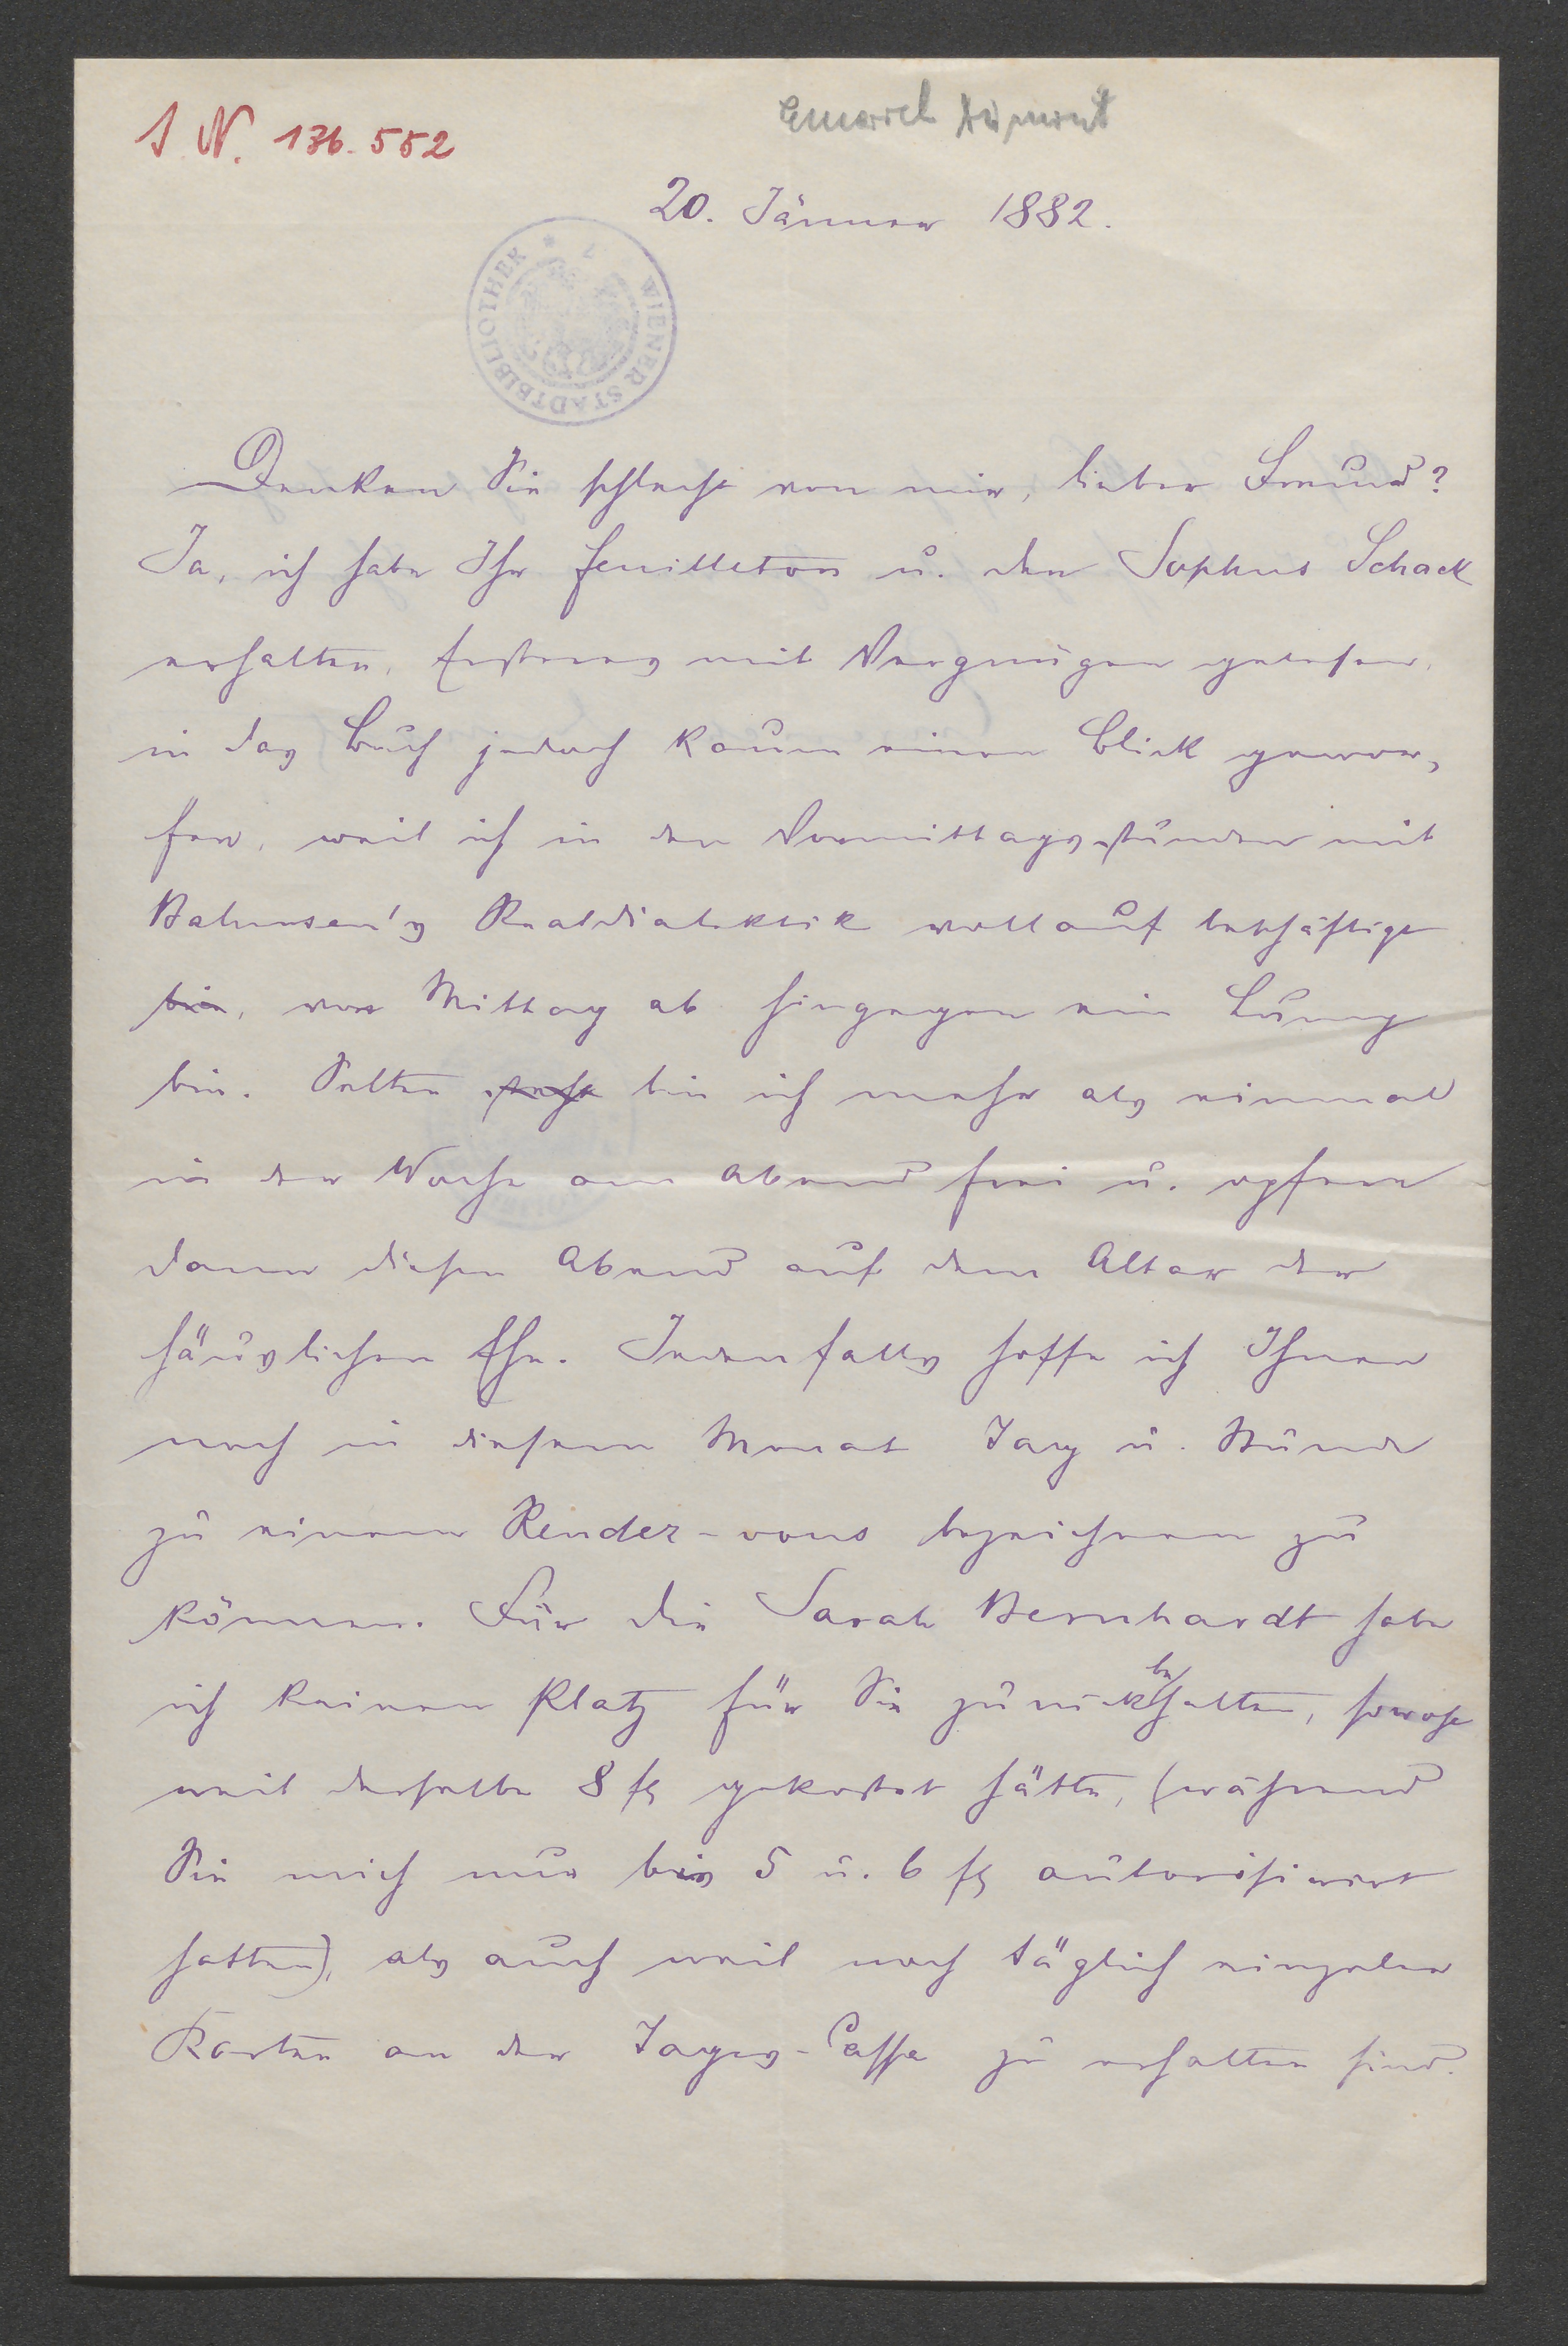 I. N. 136.552
Emerich Dumont
20. Jänner 1882.
WIENER STADTBIBLIOTHEK
Denken Sie schlecht von mir, lieber Freund?
Ja, ich habe Ihr Feuilleton u. den Sophus Schack
erhalten, Ersteres mit Vergnügen gelesen,
in das Buch jedoch kaum einen Blick gewor-
fen, weil ich in den Vormittagsstunden mit
Bahnsen's Realdialektik vollauf beschäftigt
bin, von Mittag ab hingegen ein Lump
bin. Selten bin ich mehr als einmal
in der Woche am Abend frei u. opfere
dann diesen Abend auf dem Altar der
häuslichen Ehe. Jedenfalls hoffe ich Ihnen
noch in diesem Monat Tag u. Stunde
zu einem Rendez-vous bezeichnen zu
können. Für die Sarah Bernhardt habe
ich keinen Platz für Sie zurückbehalten, sowohl
weil derselbe 8 fl gekostet hätte, (während
Sie mich nur bis 5 u. 6 fl autorisirt
hatten), als auch weil noch täglich einzelne
Karten an der Tages-Cassa zu erhalten sind.